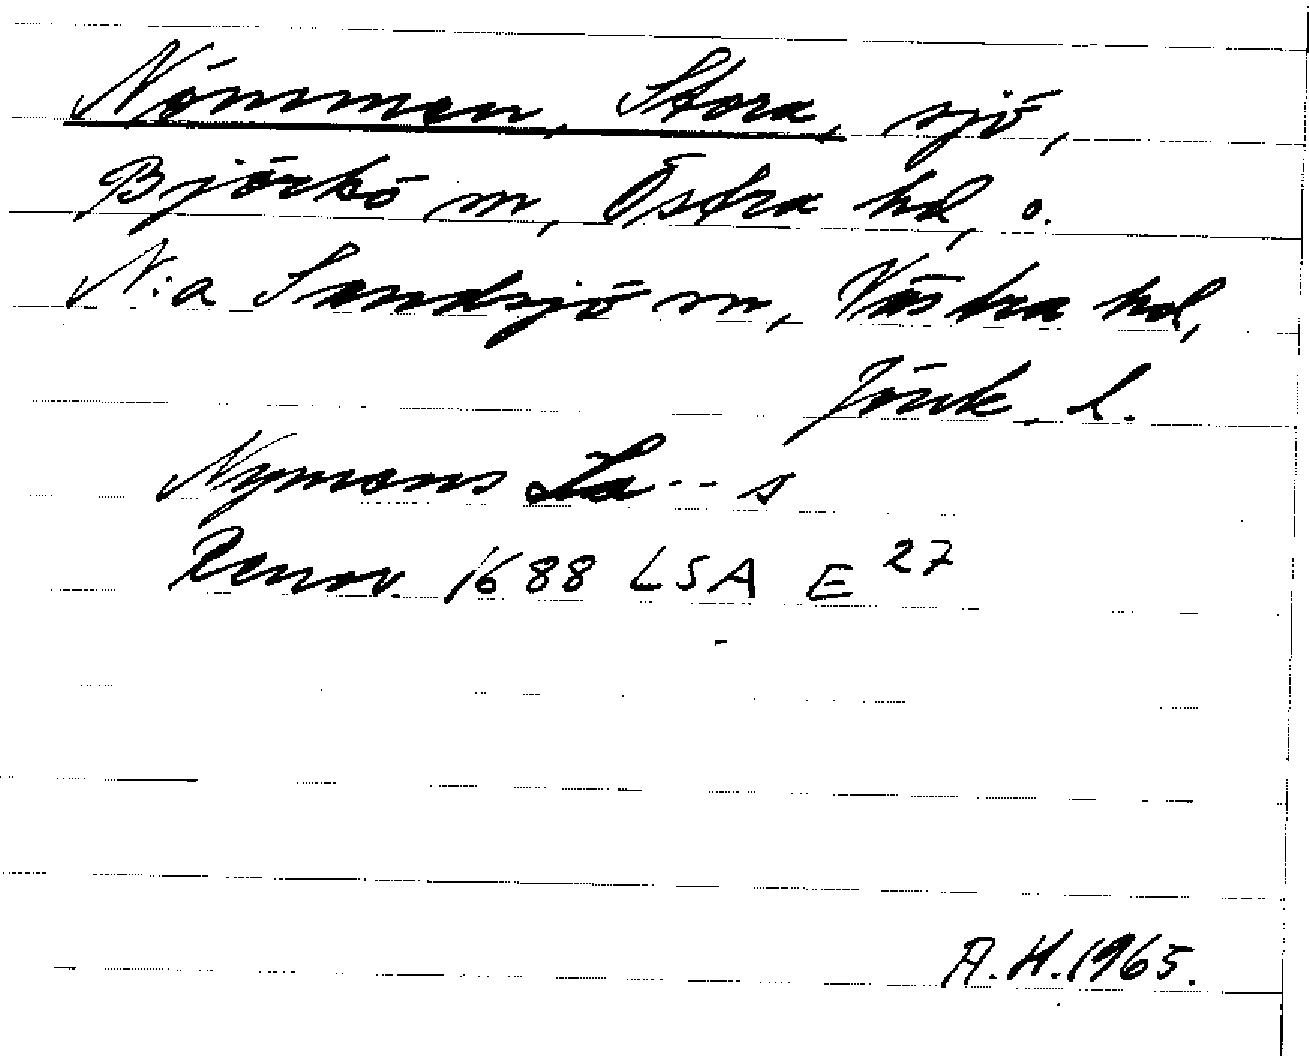 Nömmen, Stora, sjö,
Björkö sn, Östra hd, o.
N:a Sandsjö sn, Västra hd,
Jönk. l.
Nymans -- s
Renov. 1688 LSA E 27
A.H. 1965.